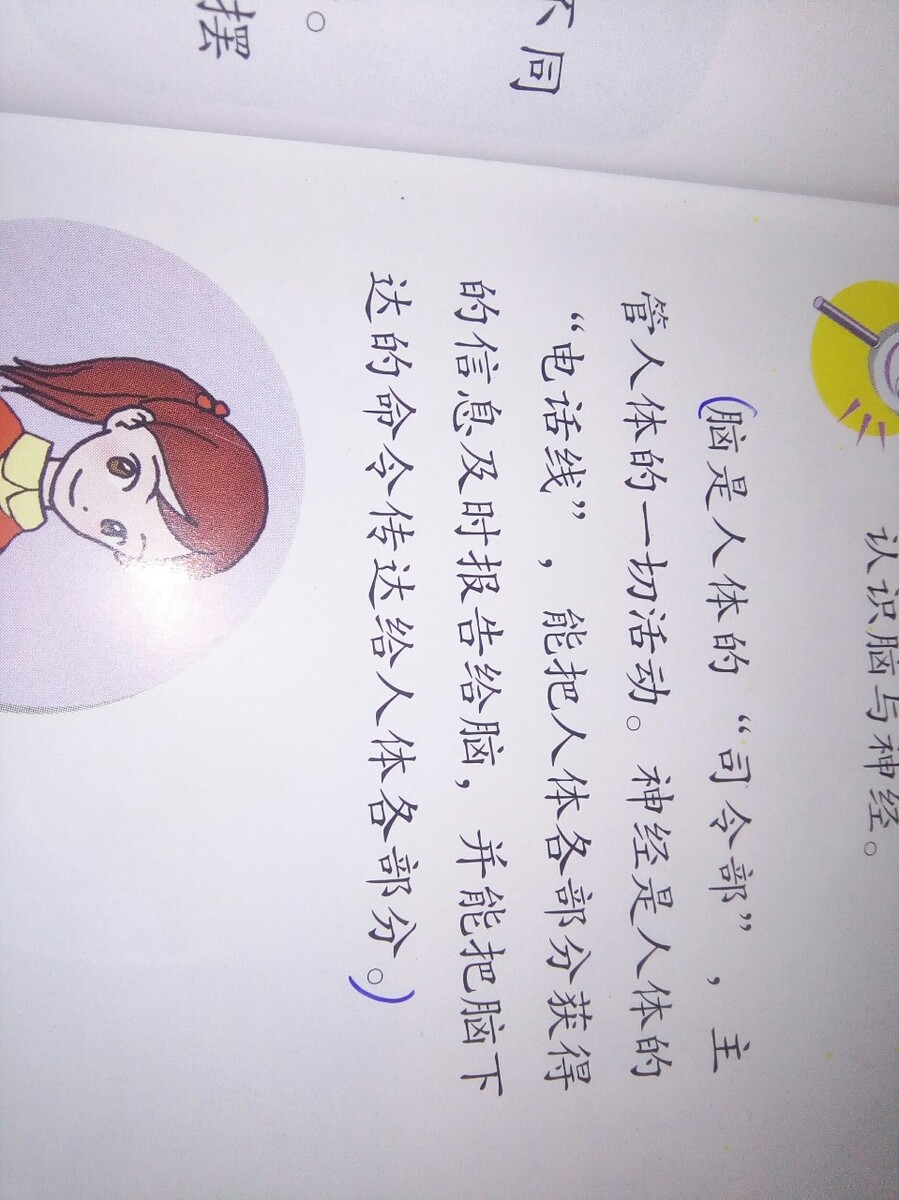 不同
。
摆
认识脑与神经。
(脑是人体的“司令部”，主
管人体的一切活动。神经是人体的
“电话线”，能把人体各部分获得
的信息及时报告给脑，并能把脑下
达的命令传达给人体各部分。)